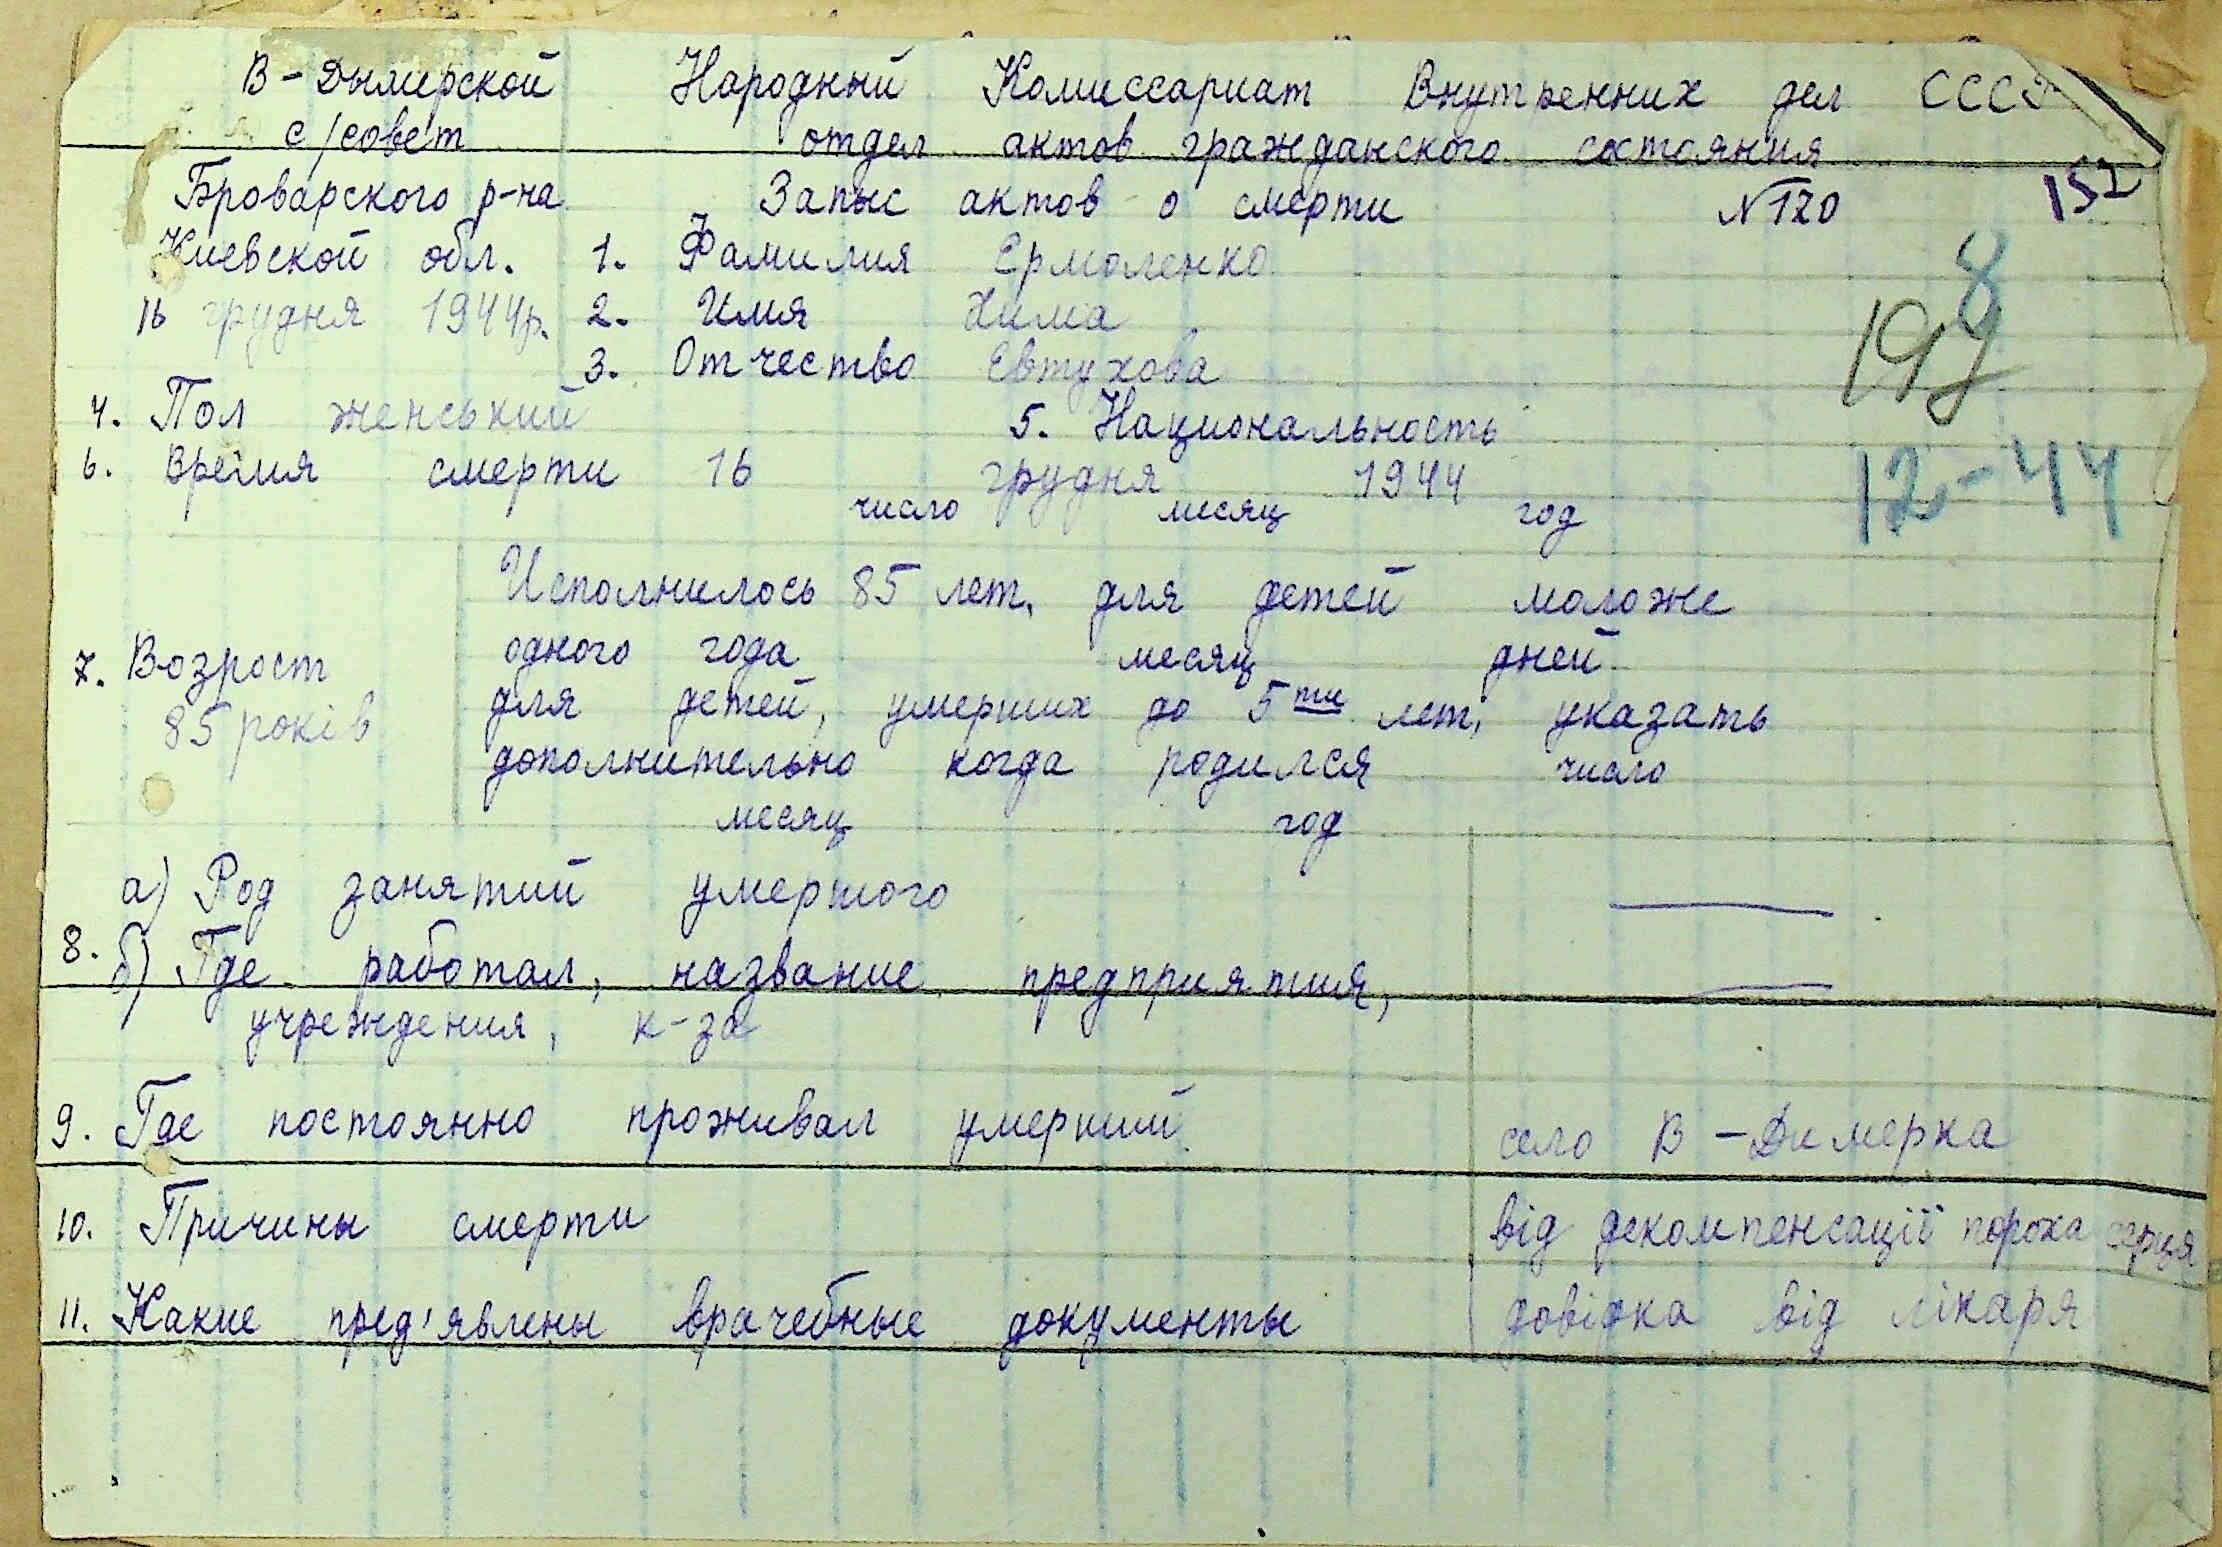 В-Дымерской Народный Комиссариат Внутренних дел СССР
с/совет отдел актов гражданского состояния
Броварского р-на Запыс актов о смерти №120 152
Киевской обл. 1. Фамилия Ермоленко
16 грудня 1944р. 2. Имя Хима
3. Отчество Евтухова
4. Пол женський 5. Национальность
6. Время смерти 16 грудня 1944
число месяц год
12-44
Исполнилось 85 лет, для детей моложе
одного года месяц дней
7. Возраст для детей, умерших до 5ти лет, указать
85 років дополнительно когда родился число
месяц год
а) Род занятий умершого —
8. б) Где работал, название предприятия, —
учреждения, к-за
9. Где постоянно проживал умерший село В-Димерка
10. Причины смерти від декомпенсації пороха серця
11. Какие пред'явлены врачебные документы довідка від лікаря